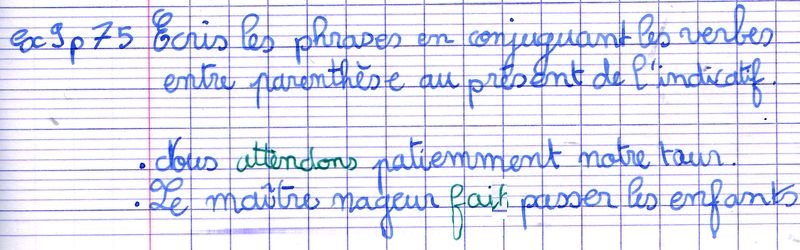 Ex 9 p 75 Ecris les phrases en conjuguant les verbes
entre parenthèse au présent de l'indicatif.
. Nous attendons patiemment notre tour.
. Le maître nageur fait passer les enfants